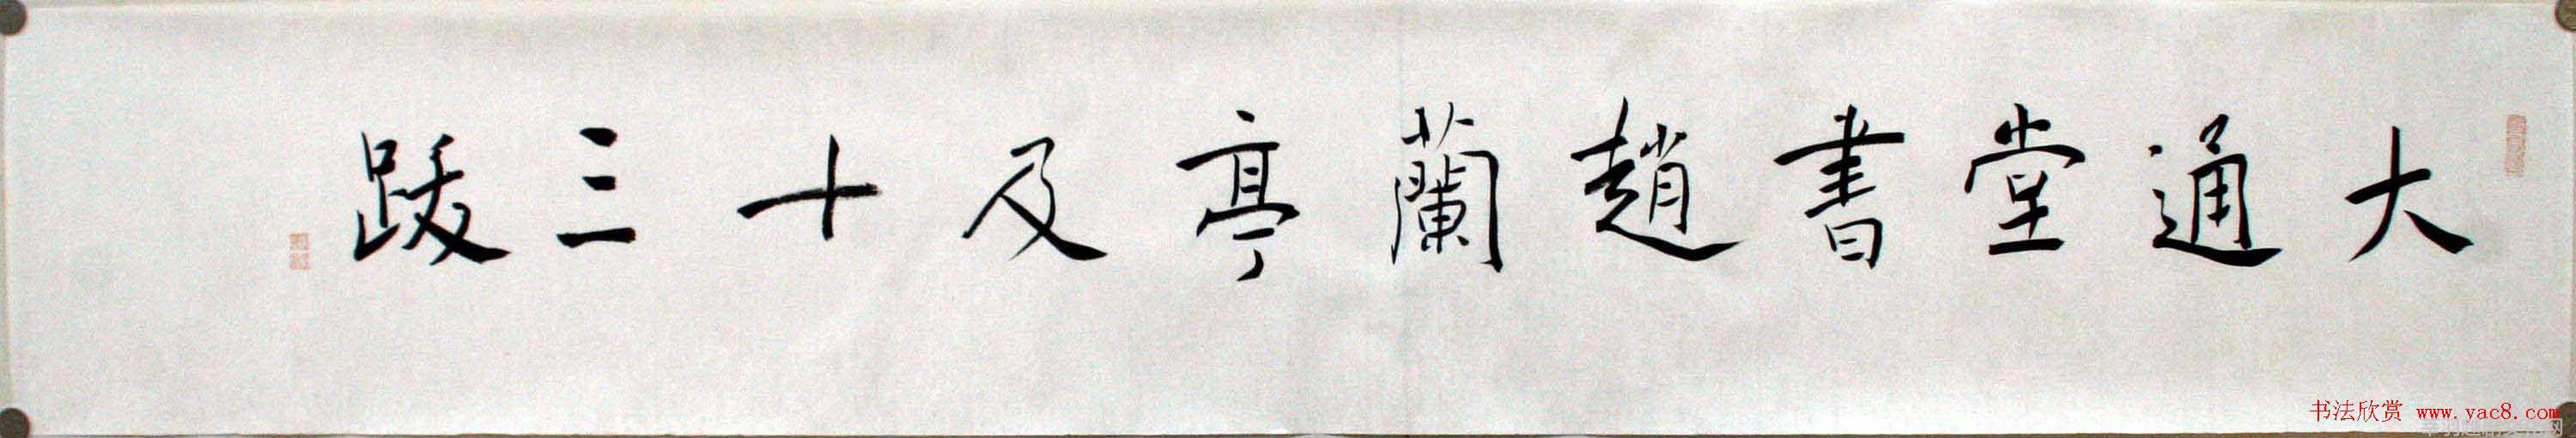 大通堂書趙蘭亭及十三跋
书法欣赏 www.yac8.com